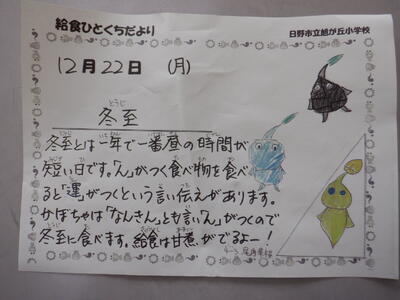 給食ひとくちだより
日野市立旭が丘小学校
12月22日 (月)
とうじ
冬至
冬至とは一年で一番昼の時間が
短い日です。「ん」がつく食べ物を食べ
ると「運」がつくという言い伝えがあります。
かぼちゃは「なんきん」とも言い「ん」がつくので
冬至に食べます。給食は甘煮がでるよー!